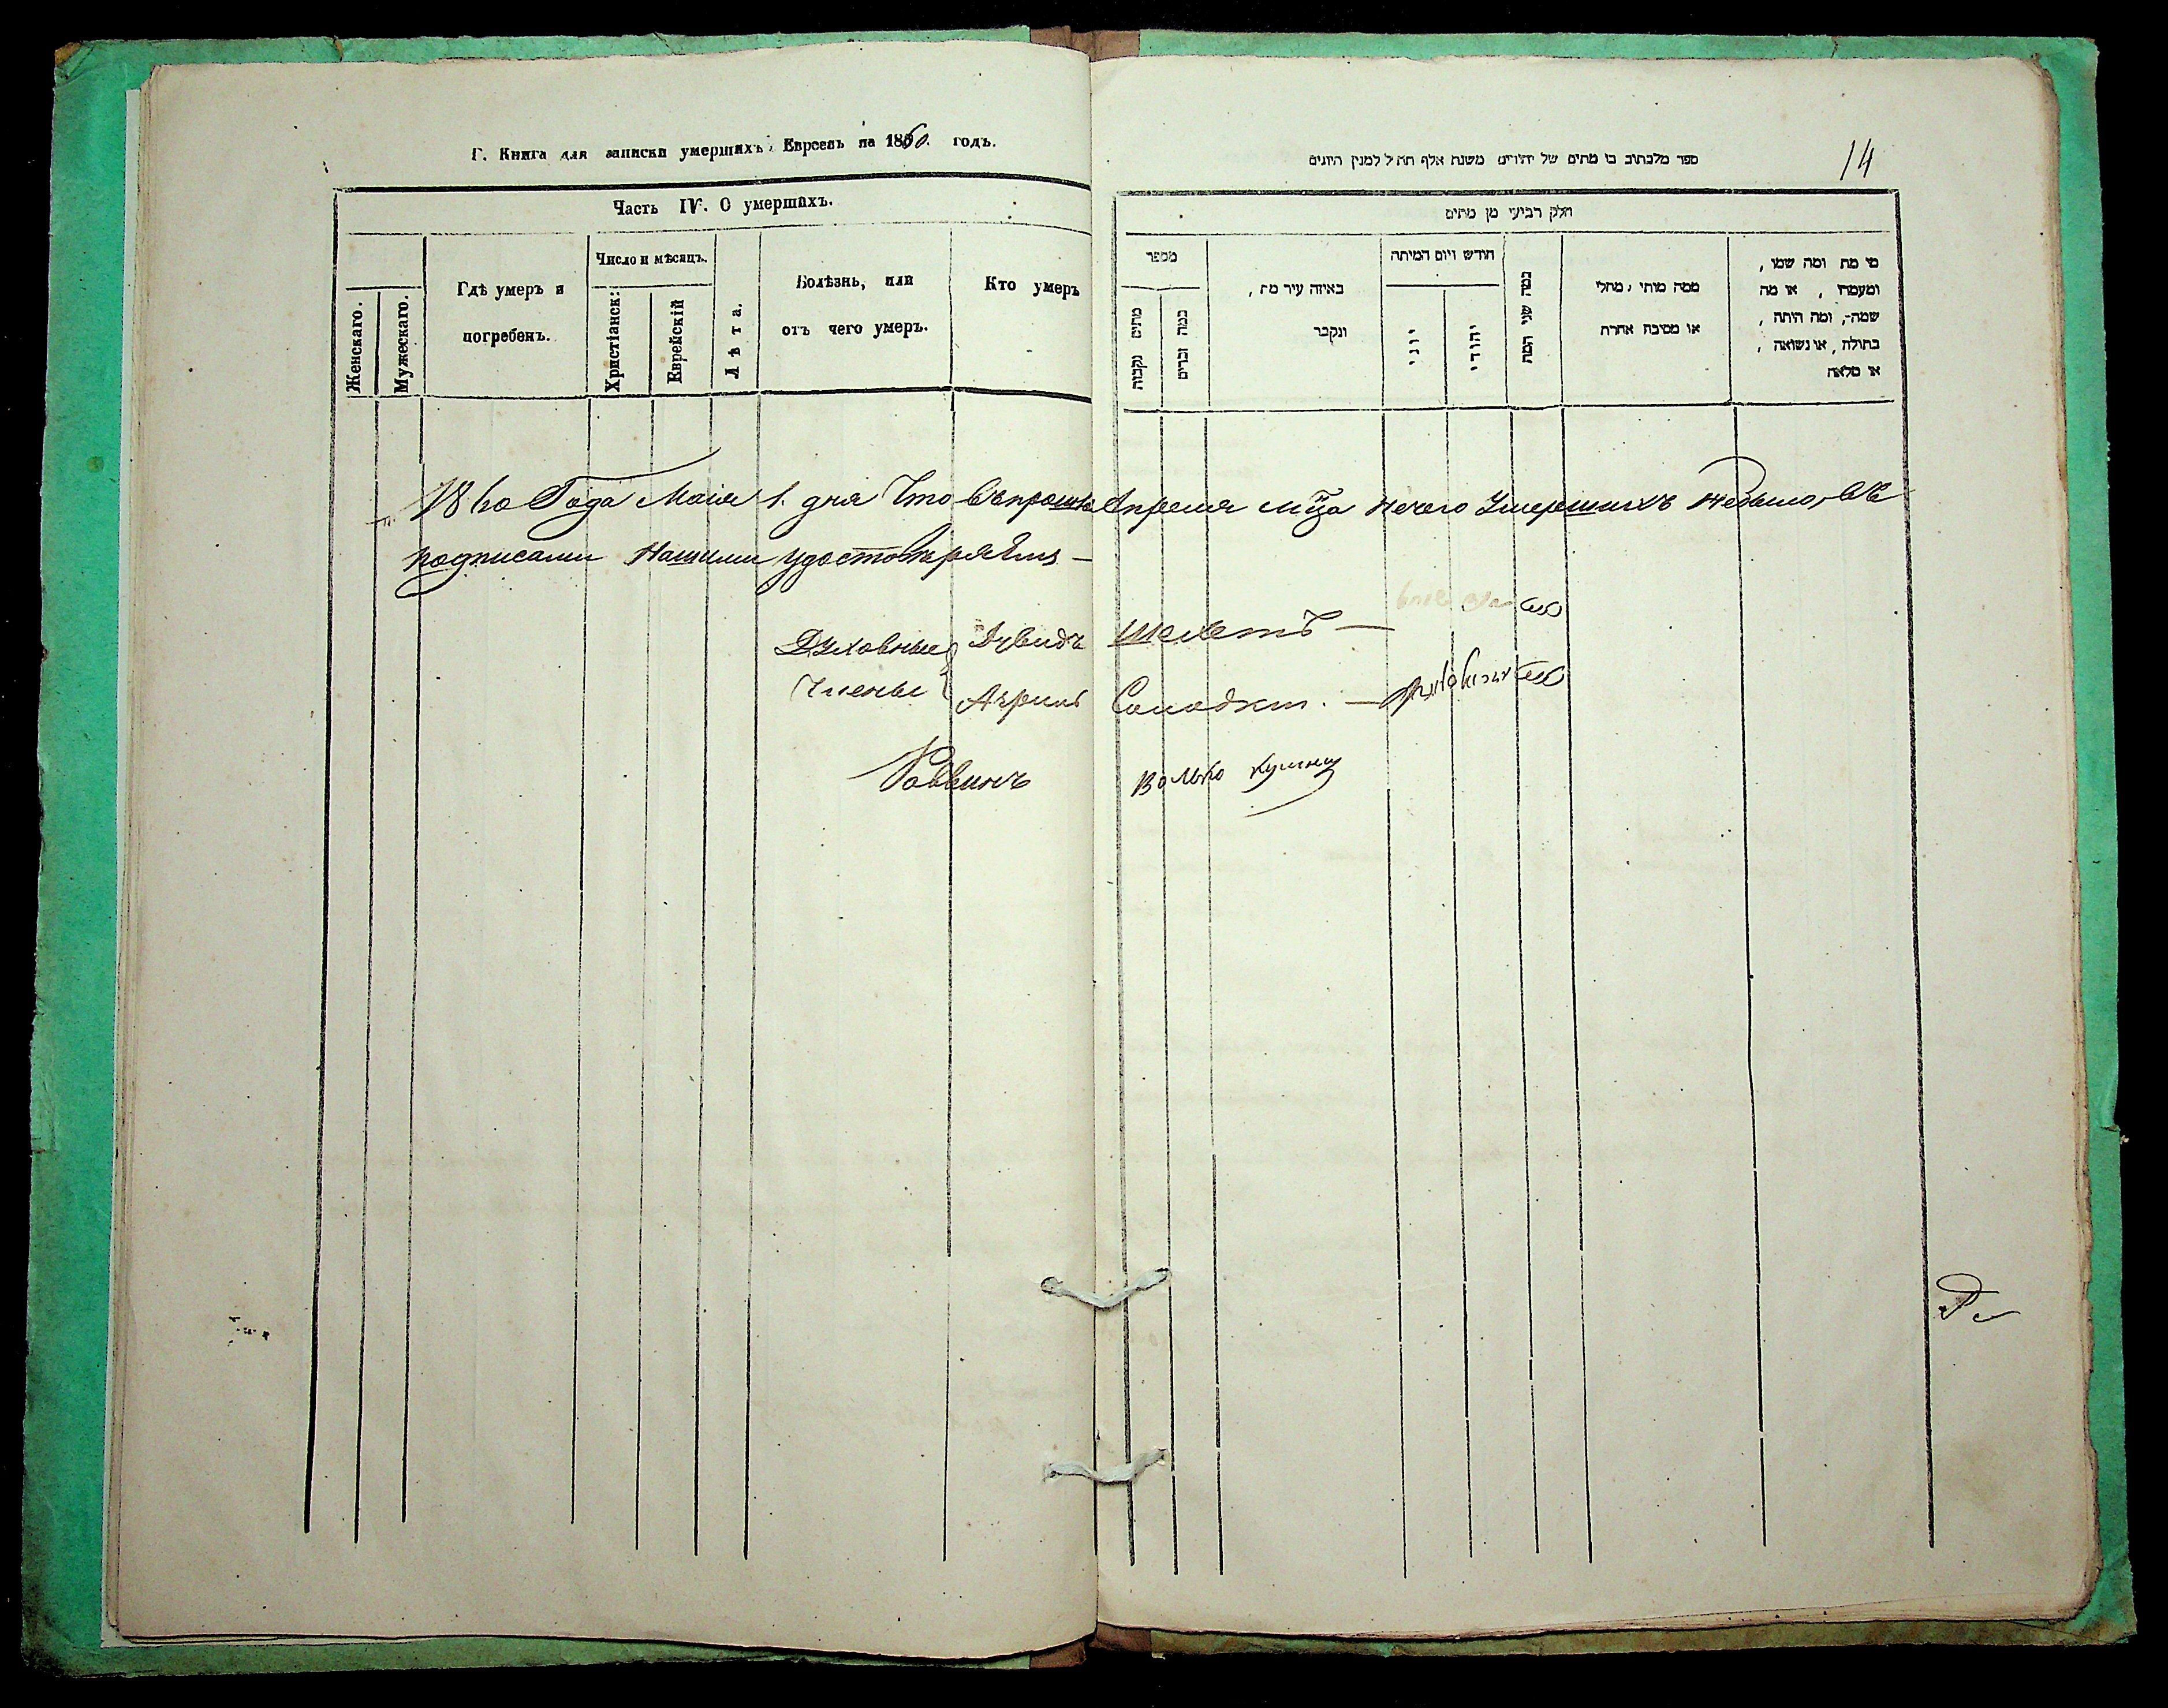 Г. Книга для записки умершихъ Евреевъ на 1860. годъ.
Часть IV. О умершихъ.
Женскаго.
Мужескаго.
Гдѣ умеръ и
погребенъ.
Число и мѣсяцъ.
Христіанск:
Еврейскій
Лѣта.
Болѣзнь, или
отъ чего умеръ.
Кто умеръ
14
ספר מלכתוב בו מתים של יהודים משנת אלף תת״ל למנין היונים
חלק רביעי מן מתים
מספר
מתים נקבות
כמה זכרים
באיזה עיר מת,
ונקבר
חודש ויום המיתה
יווני
יהודי
כמה שני המת
ממה מותו, מחלי
או מסיבה אחרת
מי מת ומה שמו,
ומעמדו, או מה
שמה, ומה היתה,
בתולה, או נשואה,
או
1860 Года Маія 1. дня Что въ прошл Апреля м-ца нечего Умершихъ небыло, въ
подписами Нашими удостоверяемъ
Духовные Давидъ
Члены Ааронъ
Раввинъ Волько